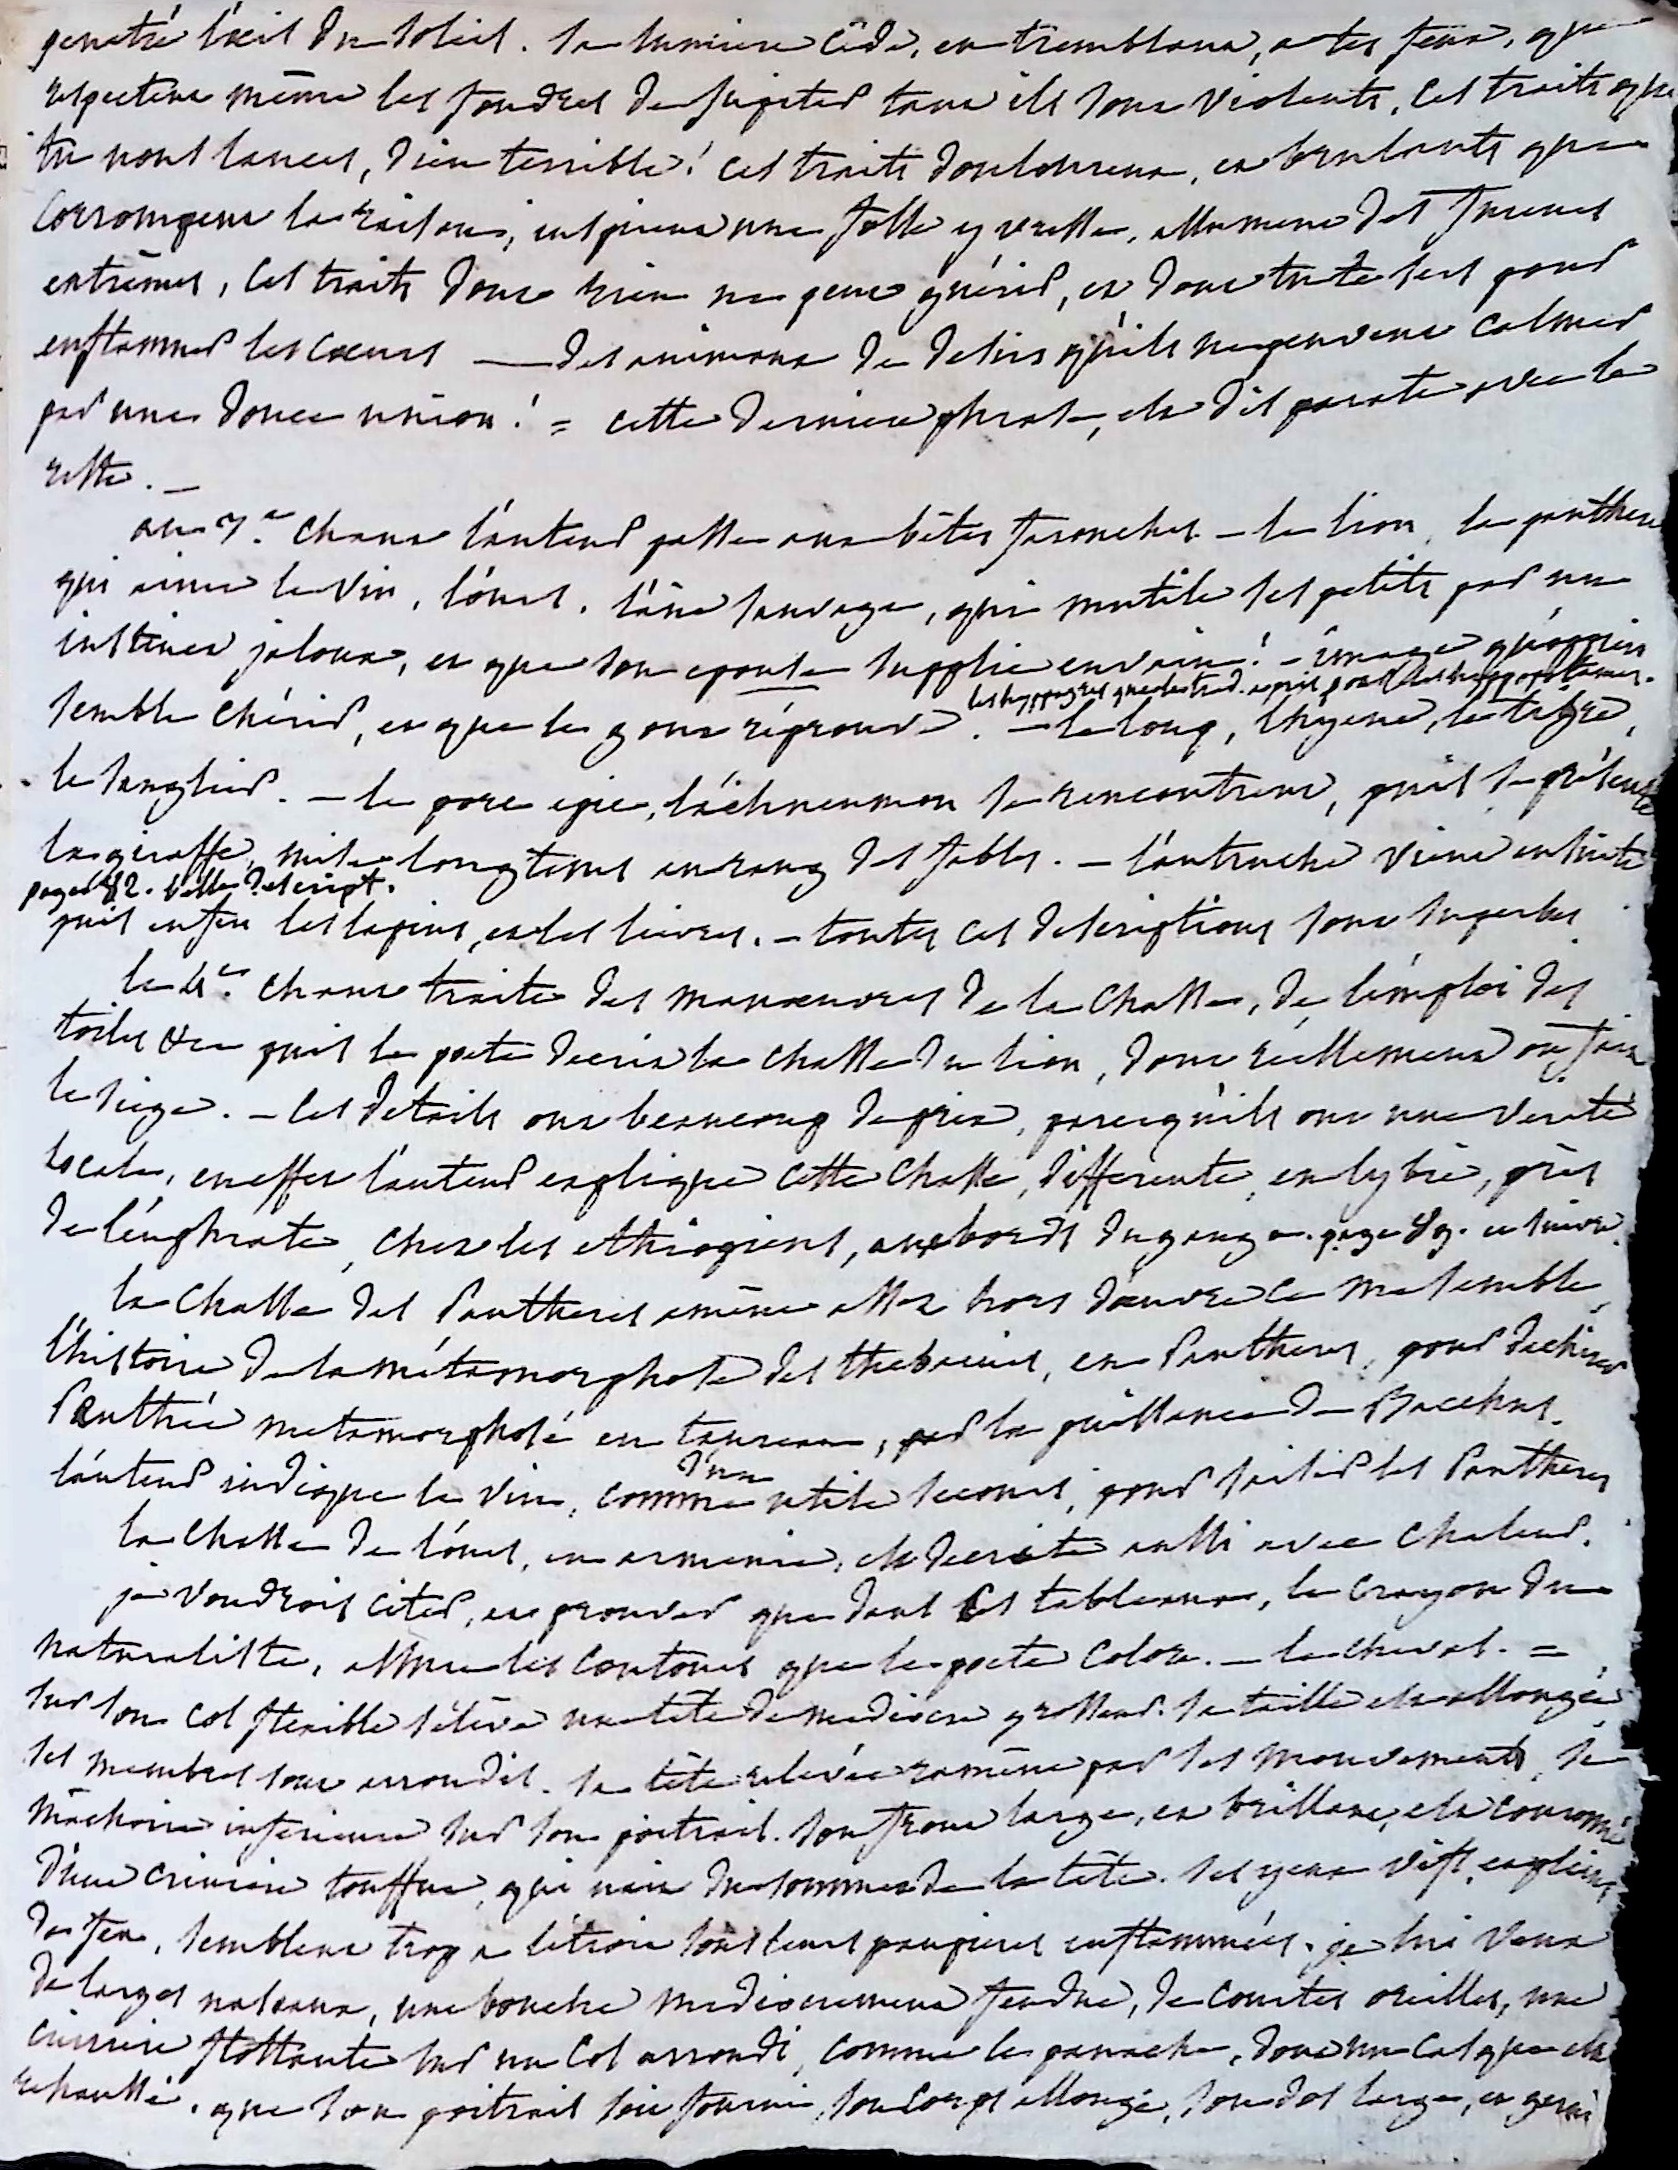 penetré l'oeil du soleil. la lumiere cede, en tremblant, a tes feux, que
respectent même les foudres de jupiter tant ils sont violents, ces traits que
tu nous lances, dieu terrible! ces traits douloureux, et brulants qui
corrompent la raison, inspirent une folle yvresse, allument des fureurs
extrêmes, ces traits dont rien ne peut guérir, et dont tu te sers pour
enflammer les coeurs — des animaux de desirs qu'ils ne peuvent calmer
par une douce union! = cette derniere phrase, est disparate avec le
reste. —
au 3e. chant l'auteur passe aux bêtes farouches. — le lion, la panthere
qui aime le vin, l'ours. l'âne sauvage, qui mutile ses petits par un
instinct jaloux, et que son epouse supplie en vain! — image qu'oppien
les hyppagres que le trad. a pris pour les hyppopotames.
semble chérir, et que le gout réprouve. — le loup, l'hyene, le tigre,
le sanglier. — le porc epic, l'ichneumon se rencontrent, puis se présente
la giraffe, mise longtems au rang des fables. — l'autruche vient ensuite
page 82. belle descript.
puis enfin les lapins, et les lievres. — toutes ces descriptions sont superbes
le 4e. chant traite des manoeuvres de la chasse, de l'emploi des
toiles &c puis le poete decrit la chasse du lion, dont réellement on fait
le siege. — ces details ont beaucoup de prix, parcequ'ils ont une verité
locale, en effet l'auteur explique cette chasse, differente, en lybie, près
de l'euphrate, chez les ethiopiens, aux bords du gange. page 89. et suiv.
la chasse des Pantheres amène assez hors d'oeuvre ce me semble,
l'histoire de la métamorphose des thebaines, en Pantheres, pour dechirer
Penthée metamorphosé en taureau, par la puissance de Bacchus.
l'auteur indique le vin, comme d'un utile secours, pour saisir les Pantheres
la chasse de l'ours, en armenie, est decrite aussi avec chaleur.
je voudrois citer, et prouver que dans ces tableaux, le crayon du
naturaliste, assure les contours que le poete colore. — le cheval. =
sur son col flexible s'élève une tête de mediocre grosseur. sa taille est allongée
ses membres sont arrondis. sa tête relevée ramène par ses mouvements, sa
mâchoire inferieure sur son poitrail. son front large, et brillant, est couronné
d'une criniere touffue, qui nait du sommet de la tête. ses yeux vifs, et pleins
de feu, semblent trop a l'étroit sous leurs paupieres enflammées. je lui veux
de larges naseaux, une bouche mediocrement fendue, de courtes oreilles, une
criniere flottante sur un col arrondi, comme le panache, dont un casque est
rehaussé. que son poitrail soit fourni, son corps allongé, son dos large, et garni